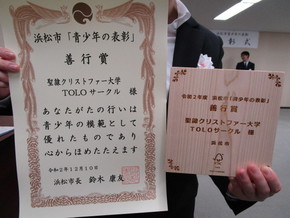 浜松市「青少年の表彰」
善行賞
聖隷クリストファー大学
TOLOサークル 様
あなたがたの行いは
青少年の模範として
優れたものであり
心からほめたたえます
令和2年12月10日
浜松市長 鈴木康友
令和2年度 浜松市「青少年の表彰」
善行賞
聖隷クリストファー大学
TOLOサークル 様
浜松市
彰式